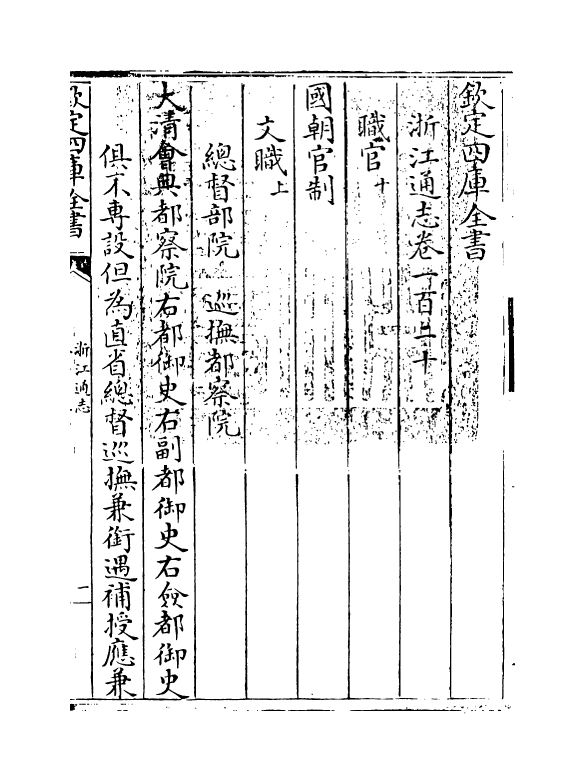 欽定四庫全書
浙江通志卷一百二十
職官十
國朝官制
文職上
總督部院 巡撫都察院
大清會典都察院右都御史右副都御史右僉都御史
俱不專設但為直省總督巡撫兼銜遇補授應兼
欽定四庫全書
浙江通志